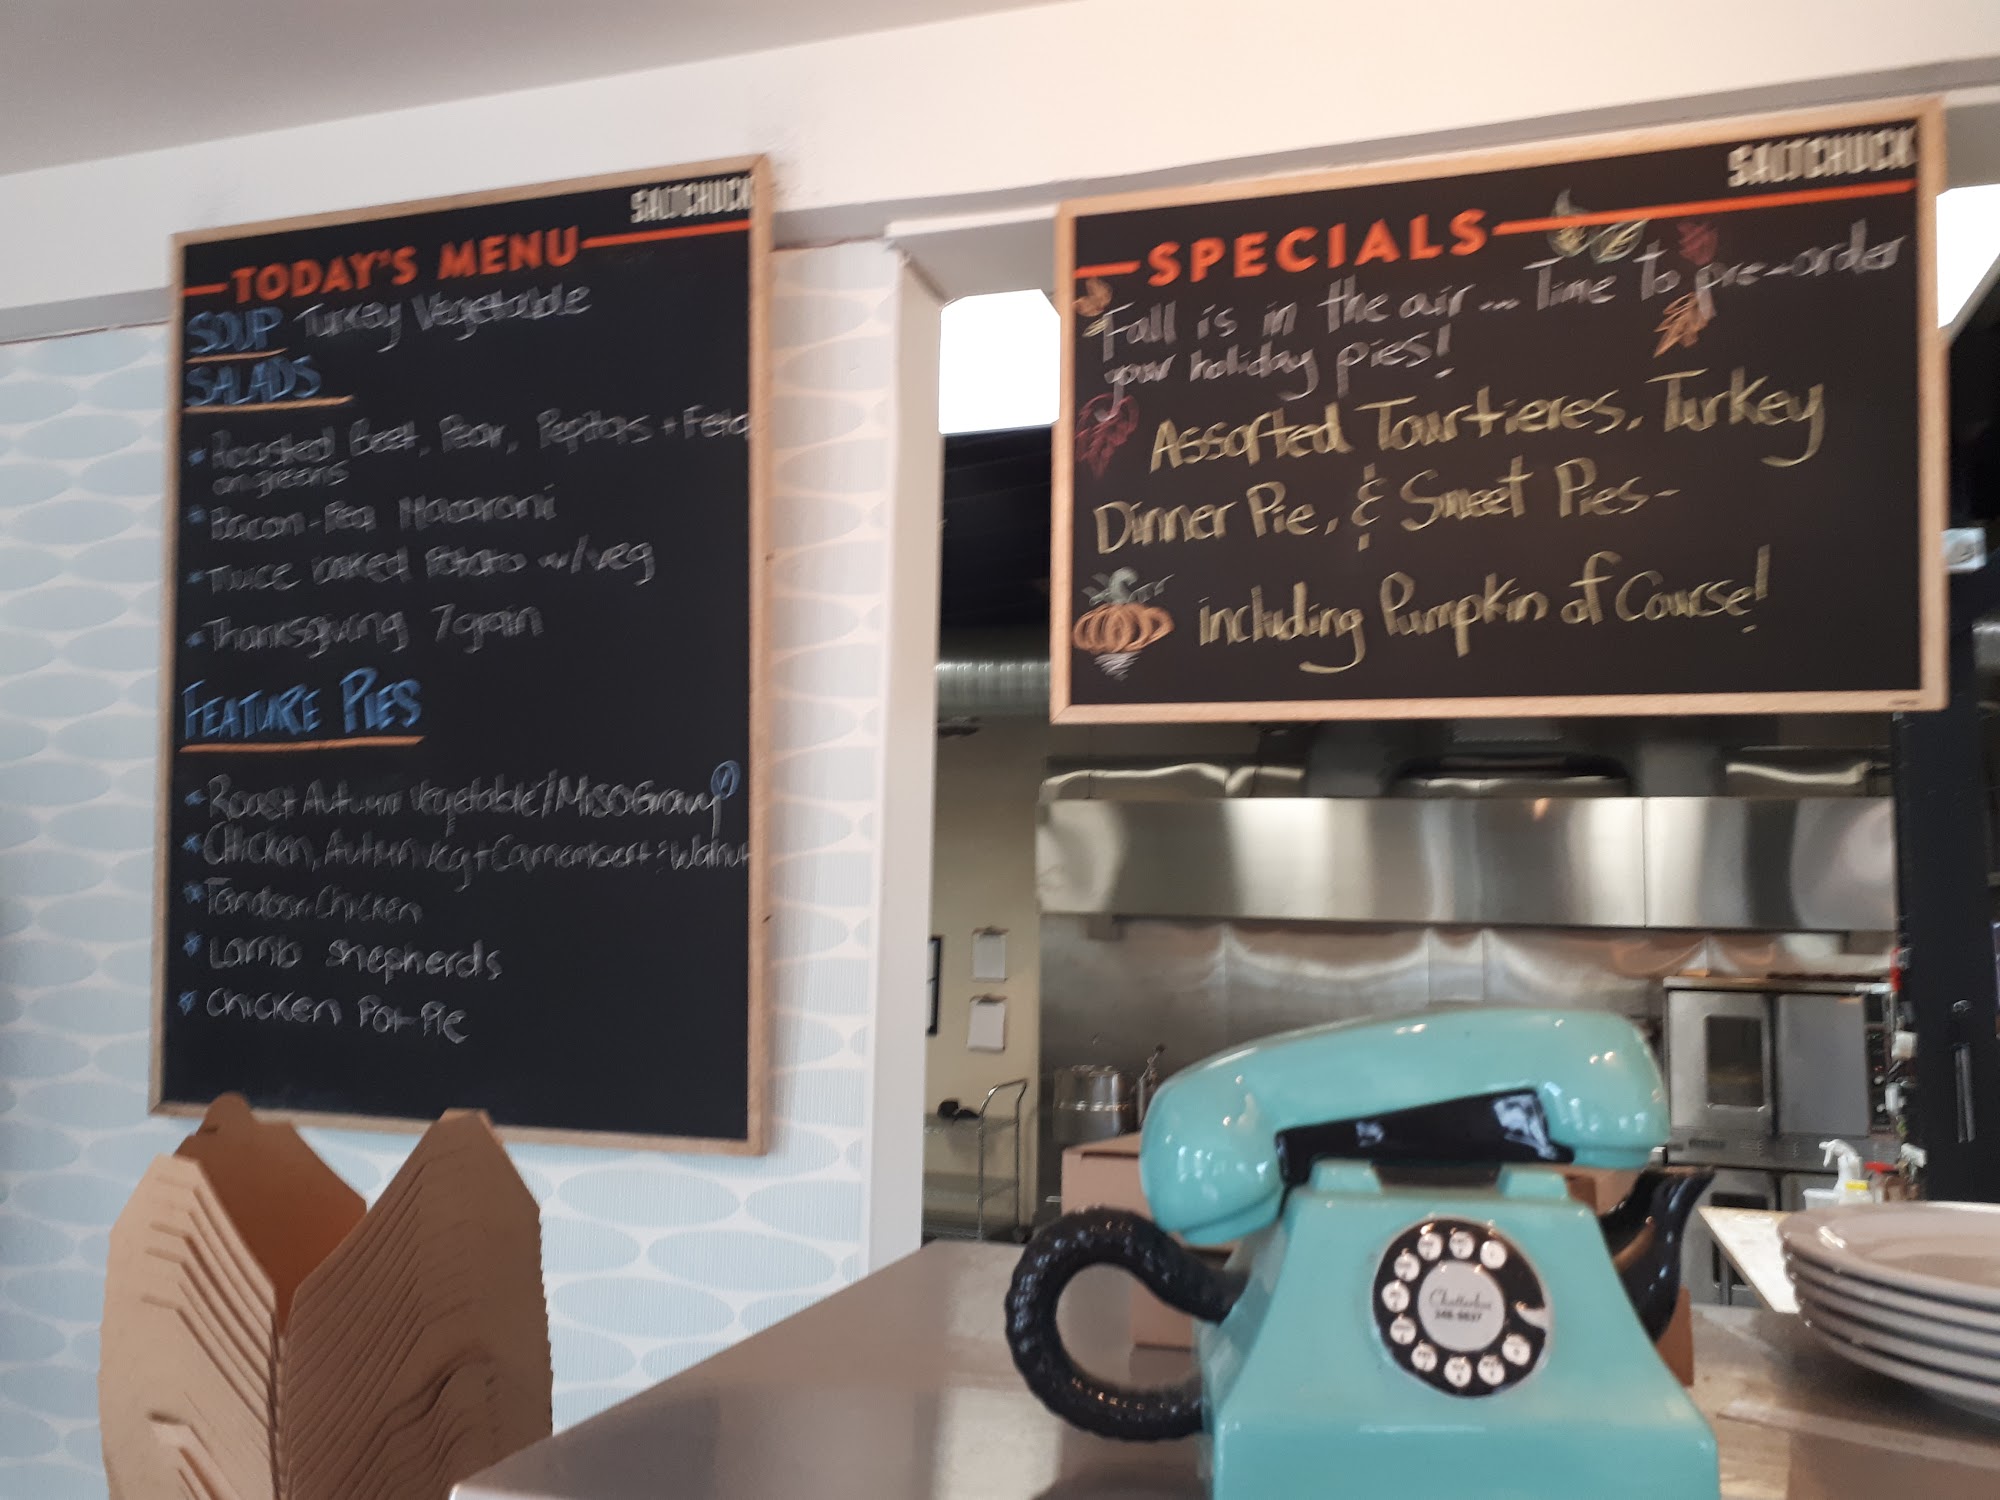 SALTCHUCK
TODAY'S MENU
SOUP Turkey Vegetable
SALADS
* Roasted Beet, Pear, Pepitas + Feta
on greens
* Bacon-Pea Macaroni
* Twice baked Potato w/veg
* Thanksgiving 7 grain
FEATURE PIES
* Roast Autumn Vegetable/Miso Gravy V
* Chicken, Autumn veg + Camembert Walnut
* Tandoori Chicken
* Lamb Shepherds
* Chicken Pot-Pie
SALTCHUCK
SPECIALS
Fall is in the air... Time to pre-order
your holiday pies!
Assorted Tourtieres, Turkey
Dinner Pie, & Sweet Pies-
including Pumpkin of Course!
Chatterbox